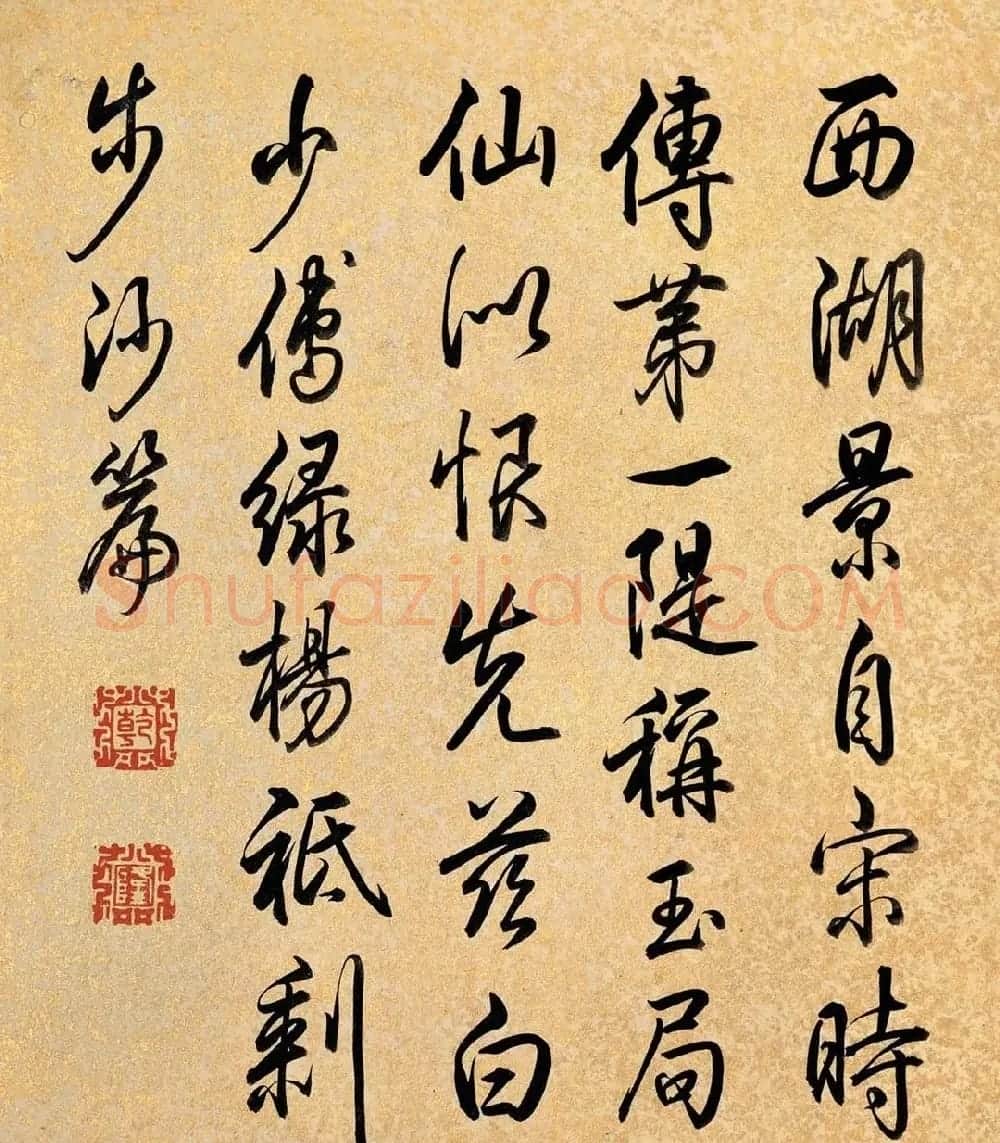 西湖景自宋時
傳第一隄稱玉局
仙似恨先茲白
少傅綠楊祇剩
步沙篇
乾隆
Shufaziliao.COM